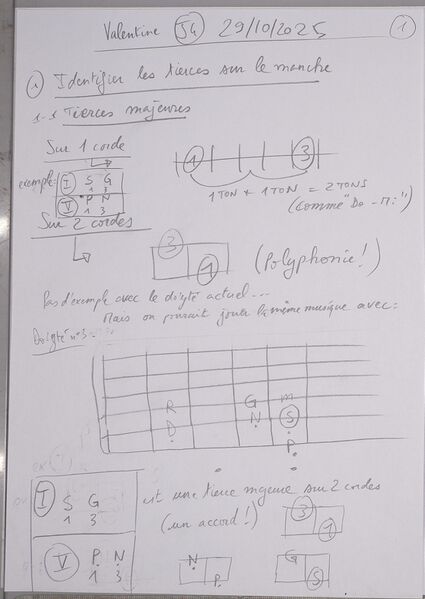 Valentine J4 29/10/2025 1
1) Identifier les tierces sur le manche
1-1 Tierces majeures
Sur 1 corde
exemple: I S G
1 3
V P N
1 3
1 3
1 TON + 1 TON = 2 TONS
(comme "Do - Mi")
Sur 2 cordes
3
1
(Polyphonie!)
Pas d'exemple avec le doigté actuel...
Mais on pourrait jouer la même musique avec:
Doigté n°3
R G m
D N S
P
I S G est une tierce majeure sur 2 cordes
1 3 (un accord!) 3
1
V P N N G
1 3 P S